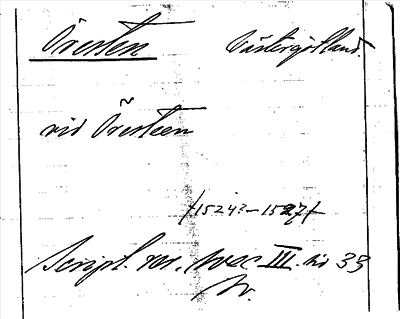 Öresten Västergötland.
vid Õresteen
/1524?-1527/
Script. rer. svec III. sid 33
Av.